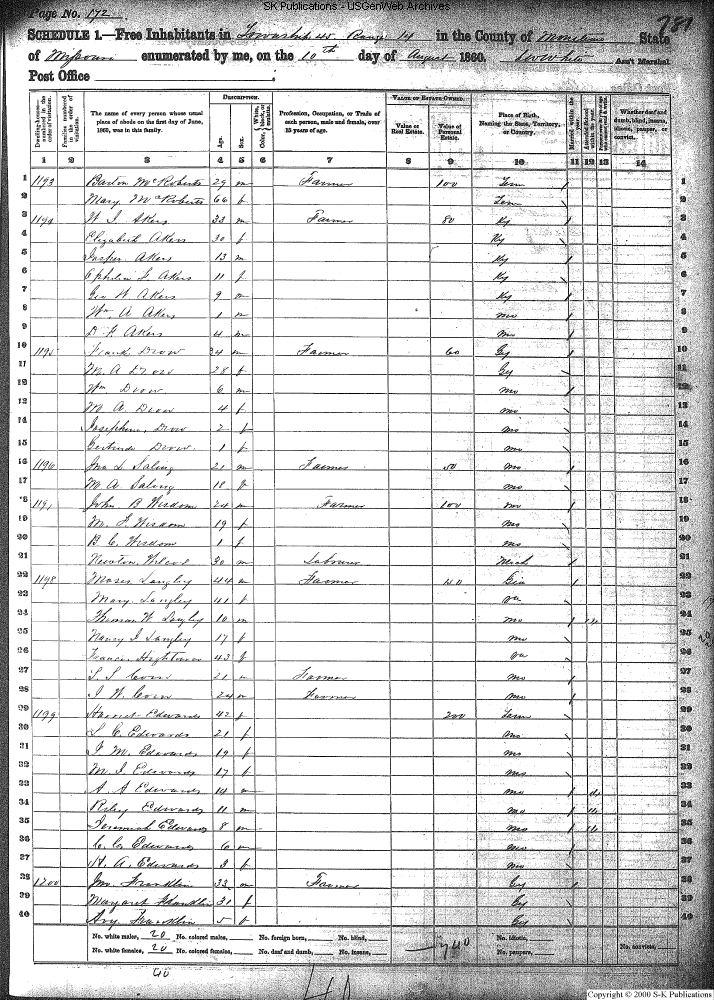 SK Publications - USGenWeb Archives
Page No. 192
781
SCHEDULE 1.—Free Inhabitants in Township 45 Range 14 in the County of Moniteau State
of Missouri enumerated by me, on the 10th day of August 1860. Ass't Marshal
Post Office
Dwelling-houses— numbered in the order of visitation.
Families numbered in the order of visitation.
The name of every person whose usual place of abode on the first day of June, 1860, was in this family.
DESCRIPTION.
Age.
Sex.
Color, White, black, or mulatto.
Profession, Occupation, or Trade of each person, male and female, over 15 years of age.
VALUE OF ESTATE OWNED.
Value of Real Estate.
Value of Personal Estate.
Place of Birth, Naming the State, Territory, or Country.
Married within the year.
Attended School within the year.
Whether deaf and dumb, blind, insane, idiotic, pauper, or convict.
1 2 3 4 5 6 7 8 9 10 11 12 13 14
1 1193 Barton McRoberts 29 m Farmer 100 Tenn / 1
2 Mary McRoberts 66 f Tenn 2
3 1194 W. J. Akers 33 m Farmer 80 Ky / 3
4 Elizabeth Akers 30 f Ky 4
5 Jasper Akers 13 m Ky / 5
6 Akers 11 f Ky 6
7 Geo W Akers 9 m Ky / 7
8 Wm A Akers 1 m mo / 8
9 Akers 4 m mo 9
10 1195 Frank Drow 34 m Farmer 60 Gy / 10
11 M. A Drow 28 f Gy 11
12 Wm Drow 6 m mo / 12
13 M A. Drow 4 f mo 13
14 Josephine Drow 2 f mo 14
15 Gertrude Drow 1 f mo 15
16 1196 Jno L Saling 21 m Farmer 50 Mo / 16
17 M A Saling 18 f mo 17
18 John B Wisdom 24 m Farmer 100 mo / 18
19 M. F Wisdom 19 f Mo 19
20 B. C. Wisdom 1 f mo 20
21 Newton Wilcox 30 m Labourer Mich / 21
22 1198 Moses Langley 44 m Farmer Geo / 22
23 Mary Langley 41 f va 23
24 Langley 10 m mo / 24
25 Nancy J Langley 17 f mo 25
26 Francis Hightower 43 f va 26
27 S. S. 21 m Farmer mo / 27
28 J W. 24 m Farmer mo / 28
29 1199 Harriet Edwards 42 f 200 Tenn 29
30 S C. Edwards 21 f mo 30
31 M. Edwards 19 f mo 31
32 M. J Edwards 17 f mo 32
33 A A Edwards 14 m mo / 33
34 Riley Edwards 11 m mo / 34
35 Jeremiah Edwards 8 m mo / 35
36 C. C. Edwards 6 m mo / 36
37 H. A. Edwards 3 f mo 37
38 1200 Jno. Franklin 33 m Farmer Gy / 38
39 Margaret Franklin 31 f Gy 39
40 Franklin 5 f Gy 40
No. white males, 20 No. colored males, No. foreign born, No. blind, No. idiotic,
No. white females, 20 No. colored females, No. deaf and dumb, No. insane, 740 No. paupers, No. convicts,
40
Copyright © 2000 S-K Publications